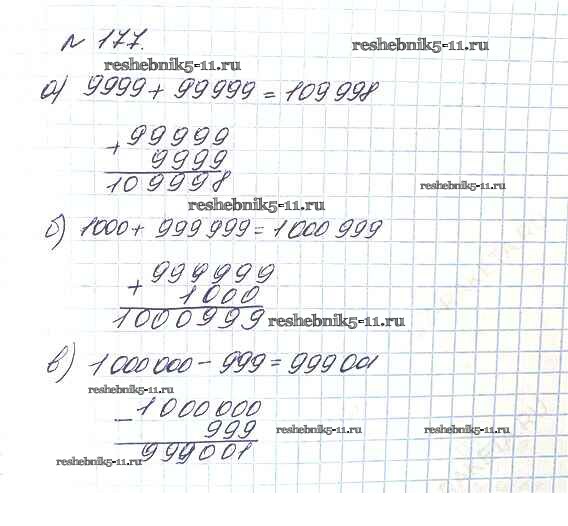 № 177.
reshebnik5-11.ru
reshebnik5-11.ru
а) 9999 + 99999 = 109 998
+ 99999
9999
109998
reshebnik5-11.ru
reshebnik5-11.ru
б) 1000 + 999 999 = 1 000 999
+ 999999
1000
1000999
reshebnik5-11.ru
в) 1 000 000 - 999 = 999 001
reshebnik5-11.ru
- 1000000
999
999001
reshebnik5-11.ru
reshebnik5-11.ru
reshebnik5-11.ru